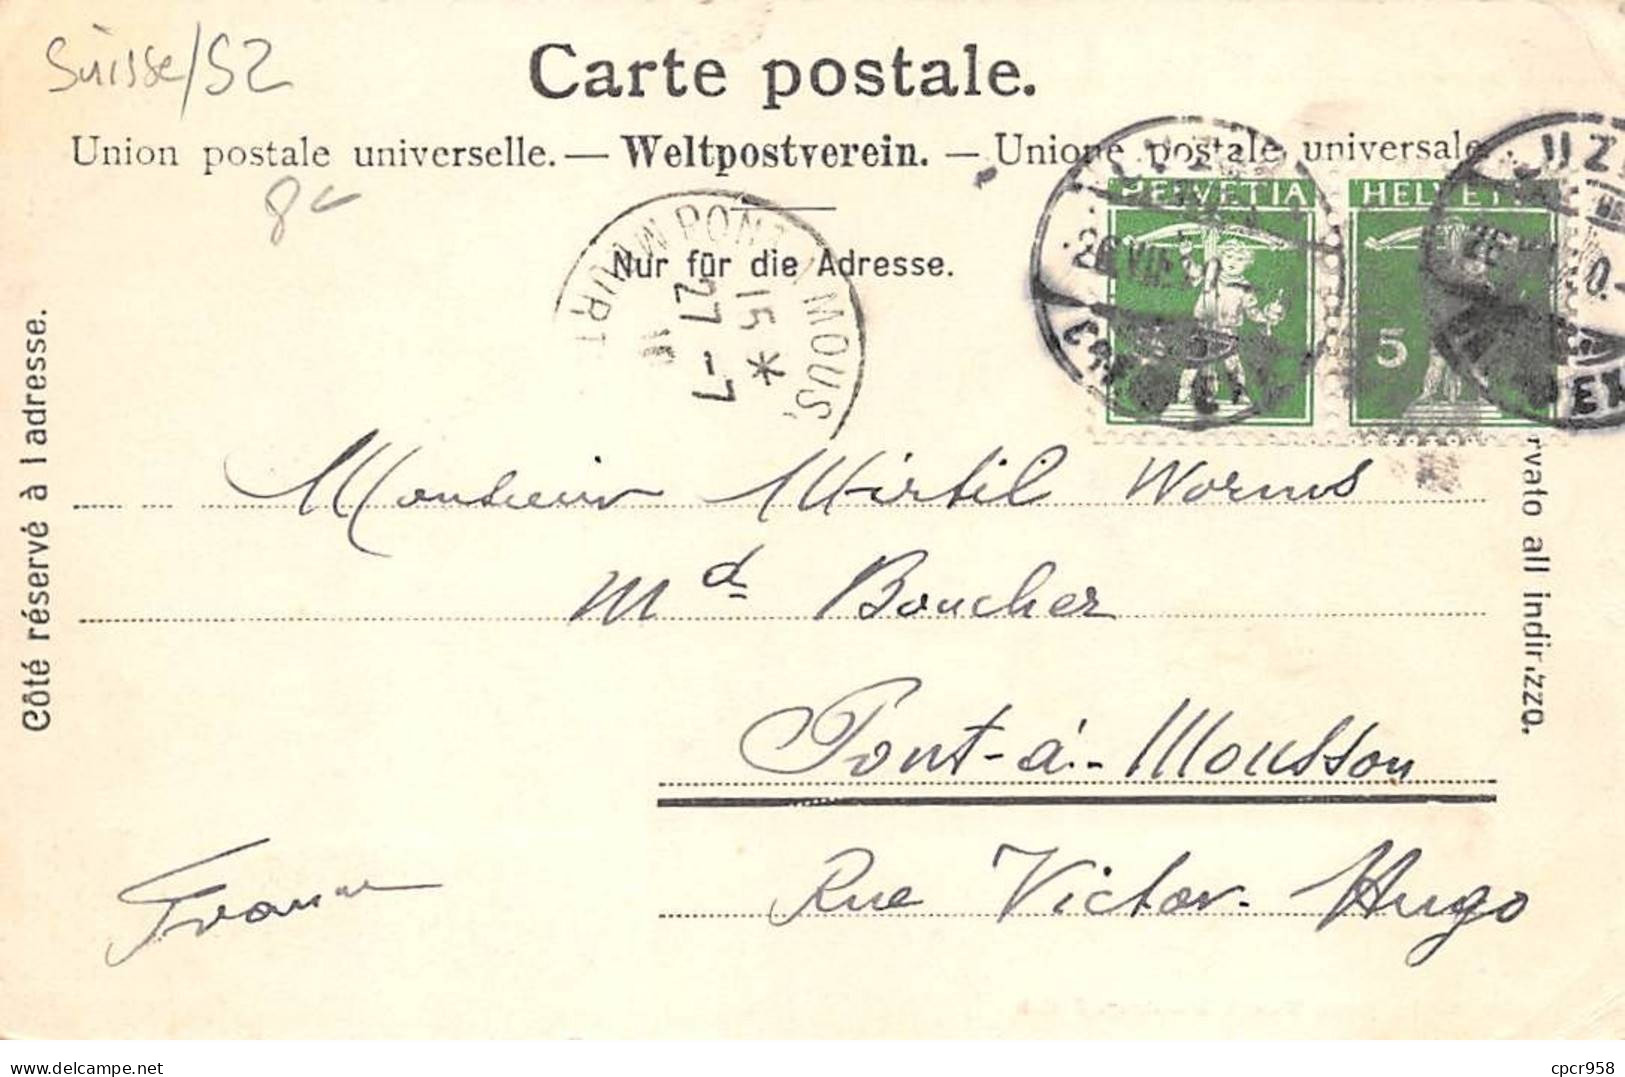 Suisse/SZ
Carte postale.
Union postale universelle. — Weltpostverein. — Unione postale universale
8-
Nur für die Adresse.
PONT-A-MOUS
15 *
27 -7
HELVETIA
HELVETIA
5
LUZERN
26 VII
Côté réservé à l adresse.
rvato all indirizzo.
Monsieur Mirtil Worms
Md Boucher
Pont-à-Mousson
Rue Victor-Hugo
France
delcampe.net
cpcr958